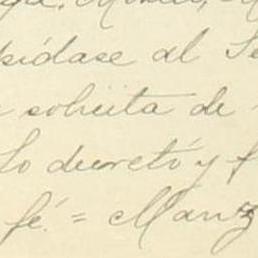 pídase al Se
solicita de
Lo decretó y f
fé. = Manz